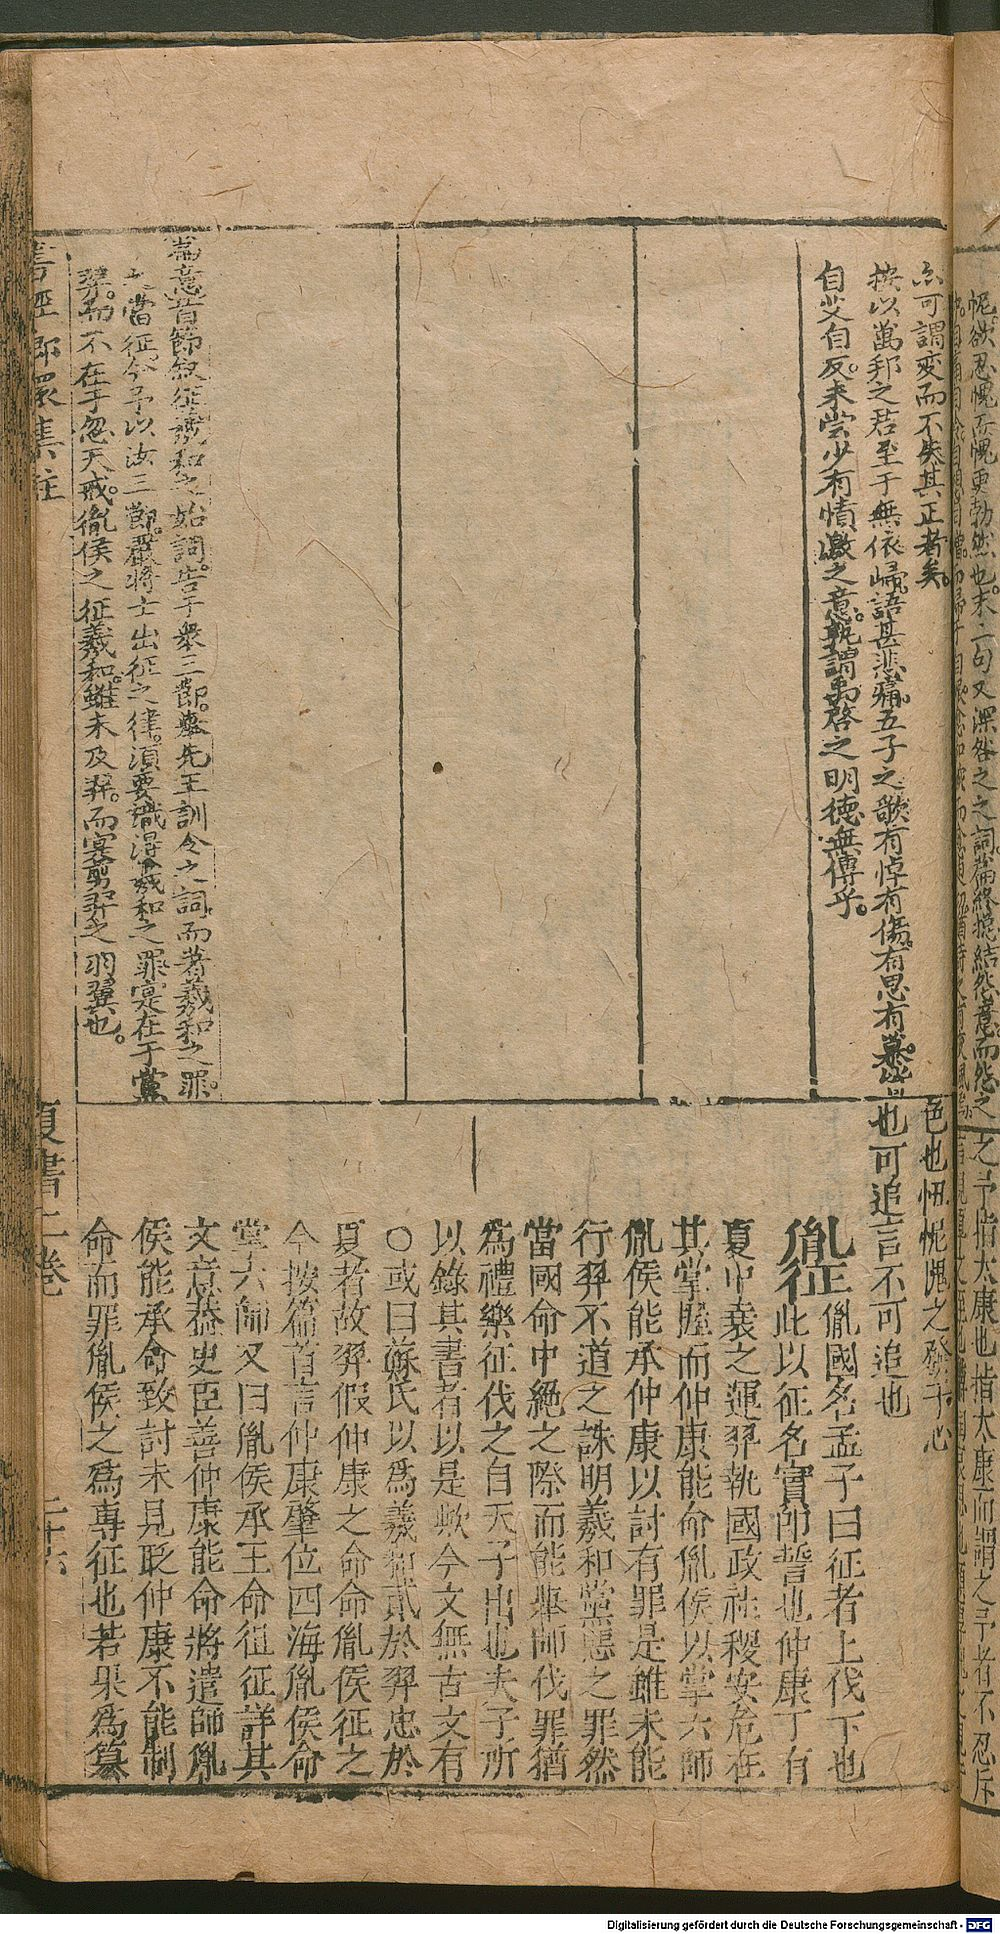 亦可謂变而不失其正者矣。
按以萬邦之君至于無依歸語甚悲痛五子之歌有悼有傷有思有慕
自艾自反未尝少有憤激之意孰謂禹啓之明德無傳乎。
篇意首節叙征羲和之始詞。告于衆三節。舉先王訓令之詞。而著羲和之罪。
當征今予以汝三節。嚴將士出征之律。須要識得羲和之罪寔在于黨
羿。而不在于忽天戒。胤侯之征羲和。雖未及羿。而寔剪羿之羽翼也。
色也忸怩愧之發于心
也可追言不可追也
胤征
胤國名孟子曰征者上伐下也
此以征名實即誓也仲康丁有
夏中衰之運羿執國政社稷安危在
其掌握而仲康能命胤侯以掌六師
胤侯能承仲康以討有罪是雖未能
行羿不道之誅明羲和黨惡之罪然
當國命中絕之際而能舉師伐罪猶
為禮樂征伐之自天子出也夫子所
以錄其書者以是歟今文無古文有
○或曰蘇氏以為羲和貳於羿忠於
夏者故羿假仲康之命命胤侯征之
今按篇首言仲康肇位四海胤侯命
掌六師又曰胤侯承王命徂征詳其
文意蓋史臣善仲康能命將遣師胤
侯能承命致討未見貶仲康不能制
命而罪胤侯之為專征也若果為篡
夏書二卷
二十六
Digitalisierung gefördert durch die Deutsche Forschungsgemeinschaft - DFG